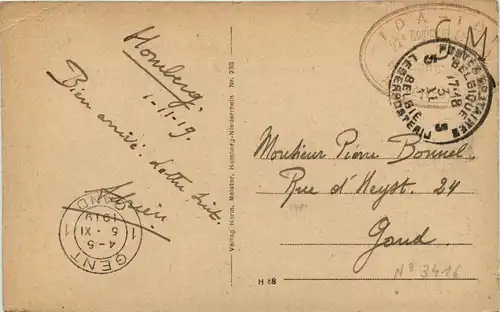 Homberg.
1-11-19.
Bien arrivé. Lettre suit.
GENT
1 4-5 1
5 · XI
1919
GAND
Verlag Herm. Meister, Homberg-Niederrhein Nr. 238
H 88
C M
POSTES MILITAIRES
BELGIQUE
5 17-18 5
3
XI
BELGIË
LEGERPOSTERIJ
Monsieur Pierre Bonnel
Rue d'Heyst. 24
Gand.
Nº 3416